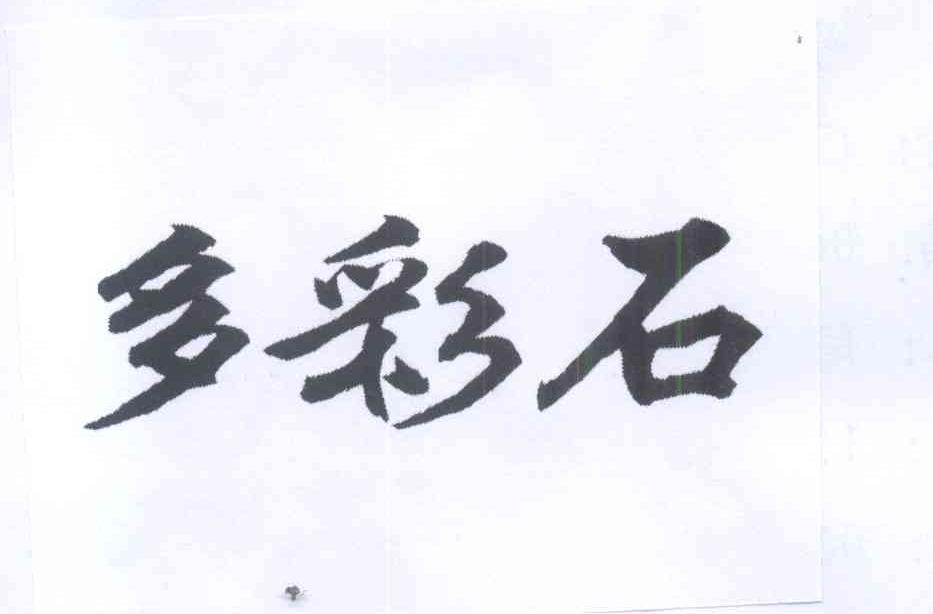 多彩石